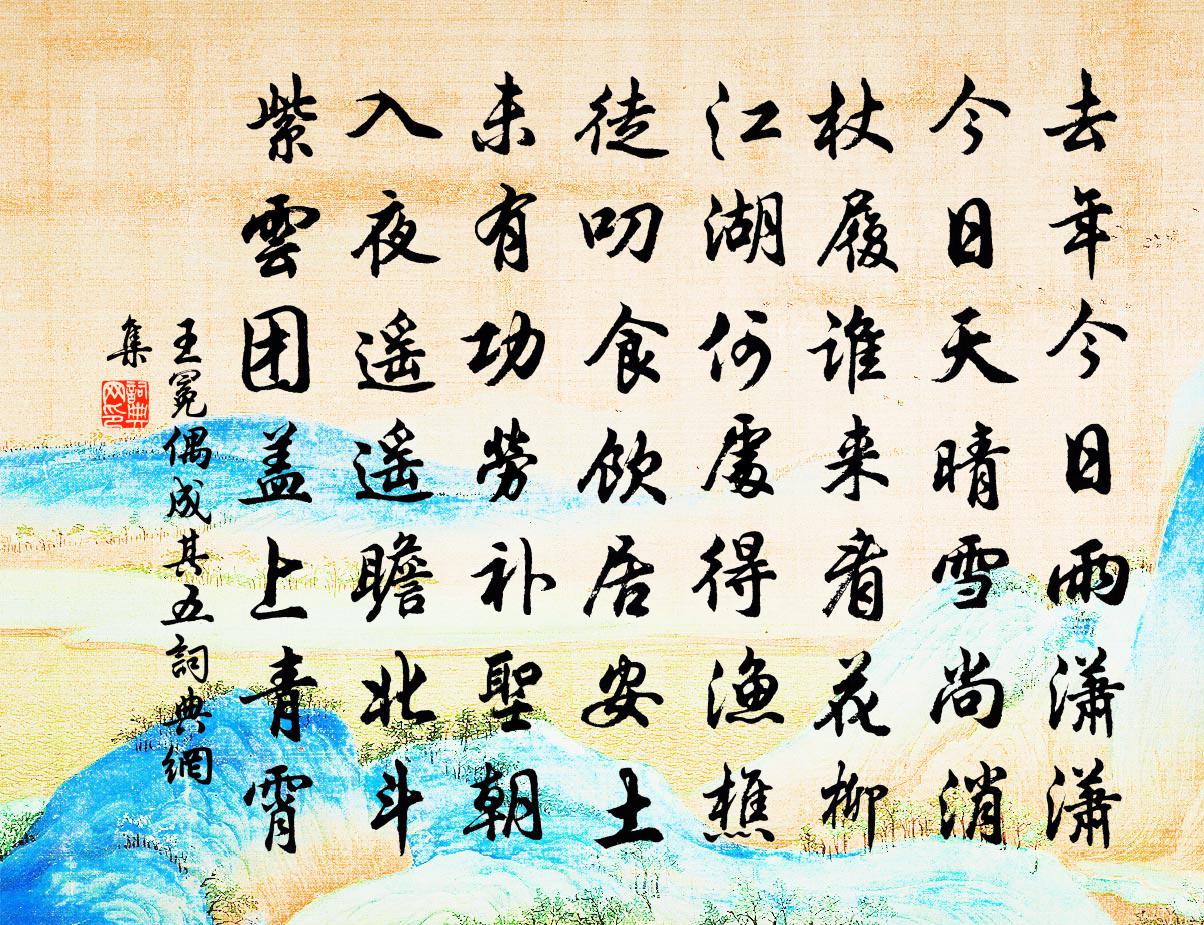 去年今日雨潇潇
今日天晴雪尚消
杖履谁来看花柳
江湖何處得渔樵
徒叨食飲居安土
未有功劳补聖朝
入夜遥遥瞻北斗
紫雲团盖上青霄
王冕偶成其五詞典網
集
詞典网印